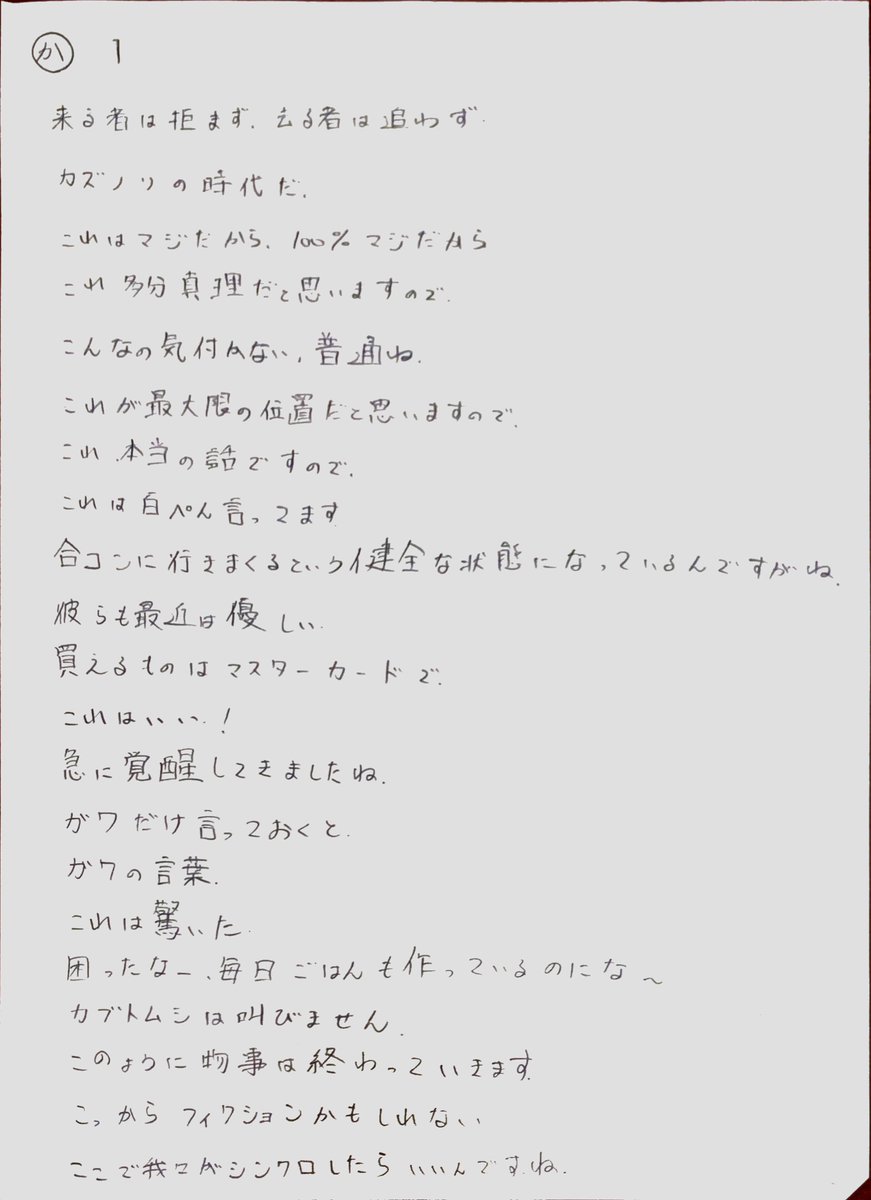 か 1
来る者は拒まず、去る者は追わず.
カズノリの時代だ.
これはマジだから、100%マジだから
これ多分真理だと思いますので.
こんなの気付かない、普通ね.
これが最大限の位置だと思いますので.
これ本当の話ですので.
これは百ぺん言ってます
合コンに行きまくるという健全な状態になっているんですがね.
彼らも最近は優しい.
買えるものはマスターカードで.
これはいい!
急に覚醒してきましたね.
ガワだけ言っておくと.
ガワの言葉.
これは驚いた.
困ったなー、毎日ごはんも作っているのにな〜
カブトムシは叫びません.
このように物事は終わっていきます.
こっからフィクションかもしれない
ここで我々がシンクロしたらいいんですね.